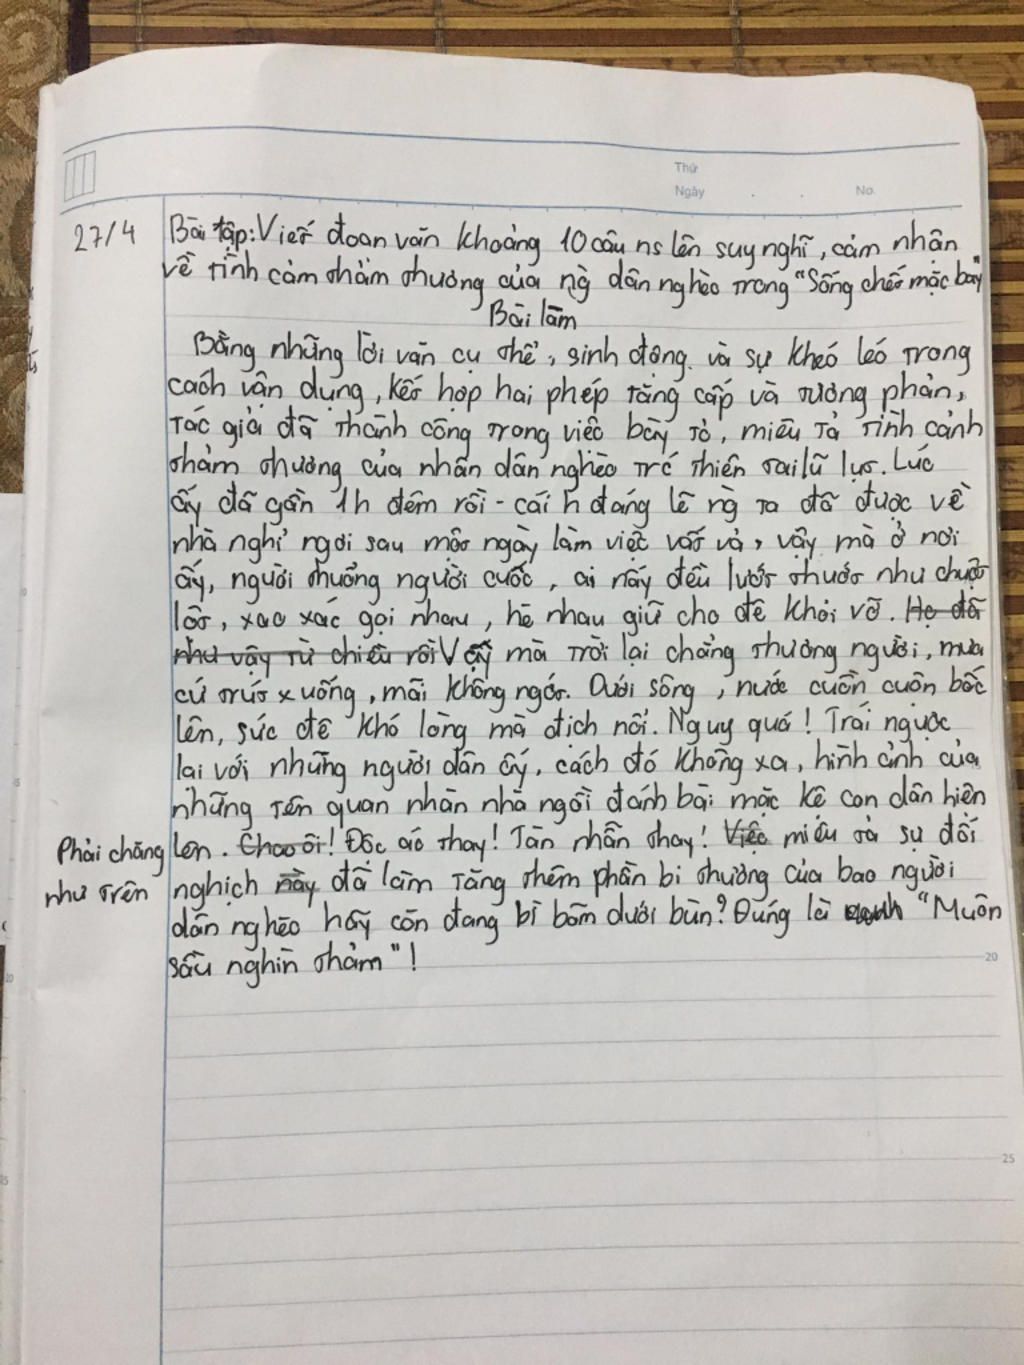 Thứ
Ngày . . No.
27/4
Bài tập: Viết đoạn văn khoảng 10 câu ns lên suy nghĩ, cảm nhận
về tình cảm thảm thương của ng dân nghèo trong "Sống chết mặc bay"
Bài làm
Bằng những lời văn cụ thể, sinh động và sự khéo léo trong
cách vận dụng, kết hợp hai phép tăng cấp và tương phản,
tác giả đã thành công trong việc bày tỏ, miêu tả tình cảnh
thảm thương của nhân dân nghèo trc thiên tai lũ lụt. Lúc
ấy đã gần 1h đêm rồi - cái h đáng lẽ ng ta đã được về
nhà nghỉ ngơi sau một ngày làm việc vất vả, vậy mà ở nơi
ấy, người thuổng người cuốc, ai nấy đều lướt thướt như chuột
lột, xao xác gọi nhau, hè nhau giữ cho đê khỏi vỡ. Họ đã
như vậy từ chiều rồi Vậy mà trời lại chẳng thương người, mưa
cứ trút xuống, mãi không ngớt. Dưới sông, nước cuồn cuộn bốc
lên, sức đê khó lòng mà địch nổi. Nguy quá! Trái ngược
lại với những người dân ấy, cách đó không xa, hình ảnh của
những tên quan nhàn nhã ngồi đánh bài mặc kệ con dân hiện
lên. Chao ôi! Độc ác thay! Tàn nhẫn thay! Việc miêu tả sự đối
Phải chăng
như trên
nghịch này đã làm tăng thêm phần bi thương của bao người
dân nghèo hãy còn đang bì bõm dưới bùn? Đúng là "Muôn
sầu nghìn thảm"!
20
25